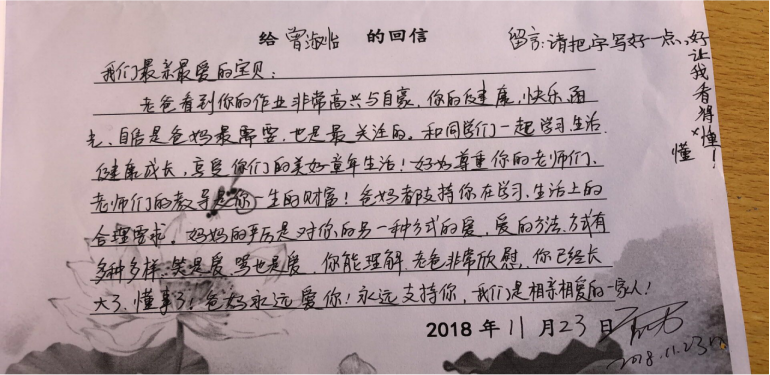 给 曾淑怡 的回信
留言:请把字写好一点,好让我看得懂!
懂
我们最亲最爱的宝贝:
老爸看到你的作业非常高兴与自豪,你的健康、快乐、阳
光、自信是爸妈最需要,也是最关注的。和同学们一起学习.生活.
健康成长,享受你们的美好童年生活!好好尊重你的老师们、
老师们的教导是你一生的财富!爸妈都支持你在学习.生活上的
合理需求。妈妈的严厉是对你的另一种方式的爱,爱的方法.方式有
多种多样:笑是爱,骂也是爱,你能理解,老爸非常欣慰,你已经长
大了.懂事了!爸妈永远爱你!永远支持你,我们是相亲相爱的一家人!
2018 年 11 月 23 日
2018.11.23